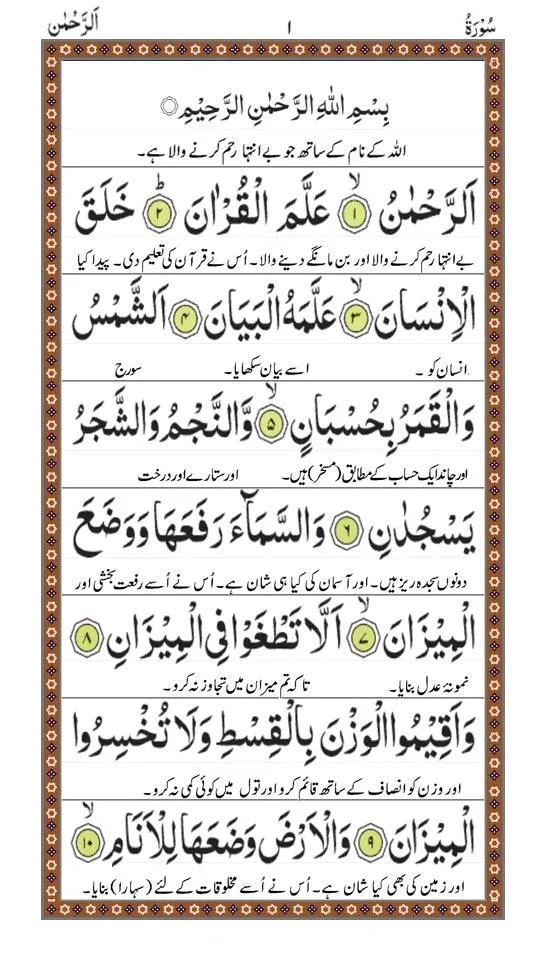 سُوْرَةُ ١ اَلرَّحْمٰن
بِسْمِ اللّٰهِ الرَّحْمٰنِ الرَّحِيْمِ۝
اللہ کے نام کے ساتھ جو بے انتہا رحم کرنے والا ہے۔
اَلرَّحْمٰنُ ۙ﴿۱﴾ عَلَّمَ الْقُرْاٰنَ ؕ﴿۲﴾ خَلَقَ
بے انتہا رحم کرنے والا اور بن مانگے دینے والا۔ اُس نے قرآن کی تعلیم دی۔ پیدا کیا
الْاِنْسَانَ ۙ﴿۳﴾ عَلَّمَهُ الْبَيَانَ ﴿۴﴾ اَلشَّمْسُ
انسان کو ۔ اسے بیان سکھایا۔ سورج
وَالْقَمَرُ بِحُسْبَانٍ ۙ﴿۵﴾ وَّالنَّجْمُ وَالشَّجَرُ
اور چاند ایک حساب کے مطابق (مسخر) ہیں۔ اور ستارے اور درخت
يَسْجُدٰنِ ﴿۶﴾ وَالسَّمَآءَ رَفَعَهَا وَوَضَعَ
دونوں سجدہ ریز ہیں۔ اور آسمان کی کیا ہی شان ہے۔ اُس نے اُسے رفعت بخشی اور
الْمِيْزَانَ ۙ﴿۷﴾ اَلَّا تَطْغَوْا فِي الْمِيْزَانِ ﴿۸﴾
نمونۂ عدل بنایا۔ تا کہ تم میزان میں تجاوز نہ کرو۔
وَاَقِيْمُوا الْوَزْنَ بِالْقِسْطِ وَلَا تُخْسِرُوا
اور وزن کو انصاف کے ساتھ قائم کرو اور تول میں کوئی کمی نہ کرو۔
الْمِيْزَانَ ﴿۹﴾ وَالْاَرْضَ وَضَعَهَا لِلْاَنَامِ ۙ﴿۱۰﴾
اور زمین کی بھی کیا شان ہے۔ اُس نے اُسے مخلوقات کے لئے (سہارا) بنایا۔